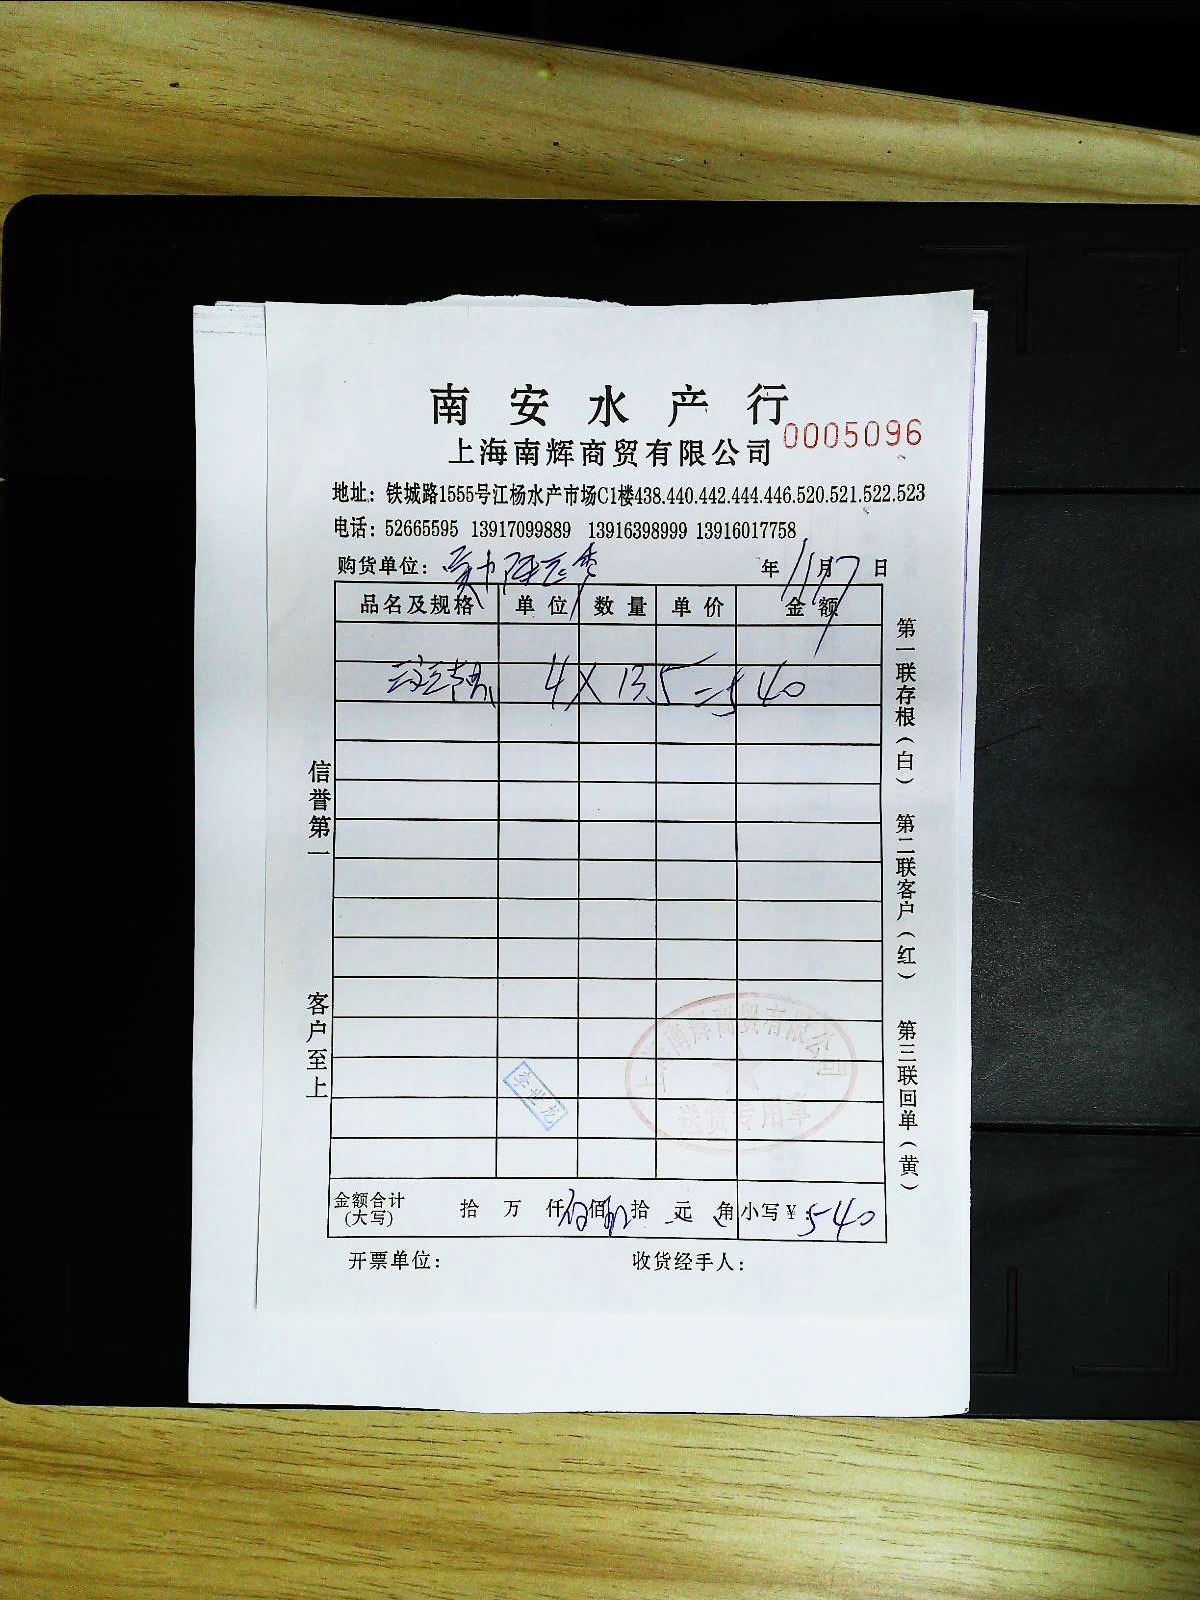 南安水产行
上海南辉商贸有限公司 0005096
地址：铁城路1555号江杨水产市场C1楼438.440.442.444.446.520.521.522.523
电话：52665595 13917099889 13916398999 13916017758
购货单位： 年 11 月 17 日
品名及规格 单位 数量 单价 金额
4 X 135 = 540
信誉第一
客户至上
第一联存根（白）
第二联客户（红）
第三联回单（黄）
上海南辉商贸有限公司
送货专用章
李世龙
金额合计（大写） 拾 万 仟 佰 拾 元 角 小写￥：540
开票单位： 收货经手人：